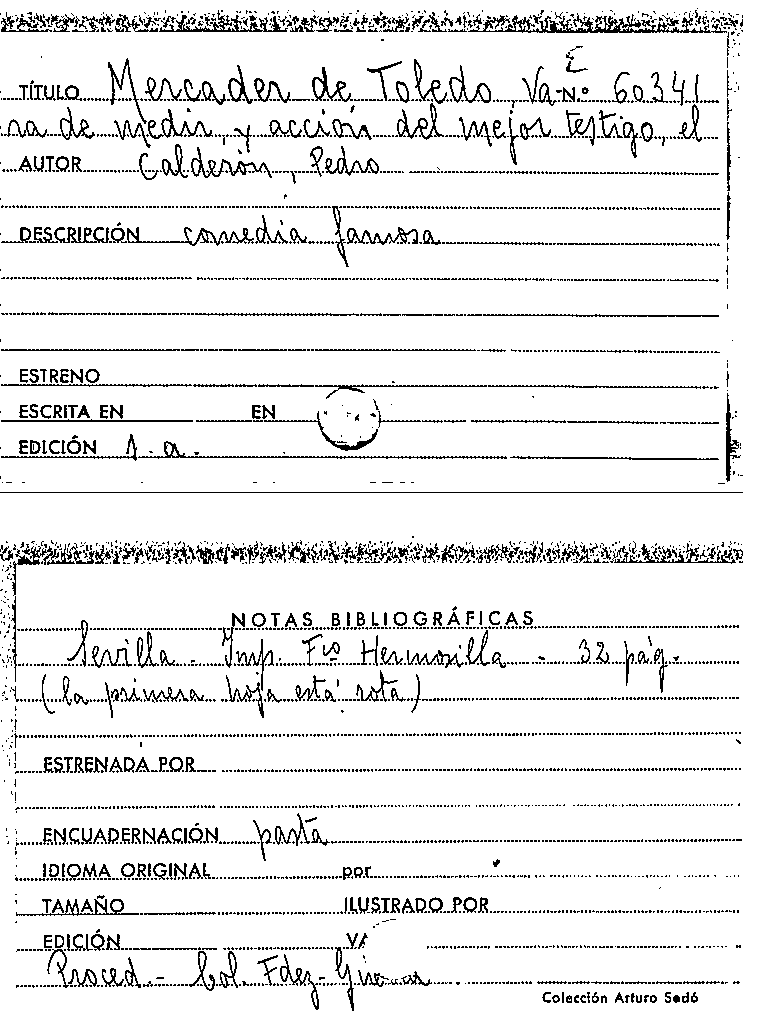 E
TÍTULO Mercader de Toledo, Va-N.º 60341
ra de medir, y acción del mejor testigo, el
AUTOR Calderón, Pedro
DESCRIPCIÓN comedia famosa
ESTRENO
ESCRITA EN EN
EDICIÓN 1.a.
NOTAS BIBLIOGRÁFICAS
Sevilla - Imp. Fco Hermosilla - 32 pág.
(la primera hoja está rota)
ESTRENADA POR
ENCUADERNACIÓN pasta
IDIOMA ORIGINAL por
TAMAÑO ILUSTRADO POR
EDICIÓN
Proced.- Col. Fdez-
Colección Arturo Sedó